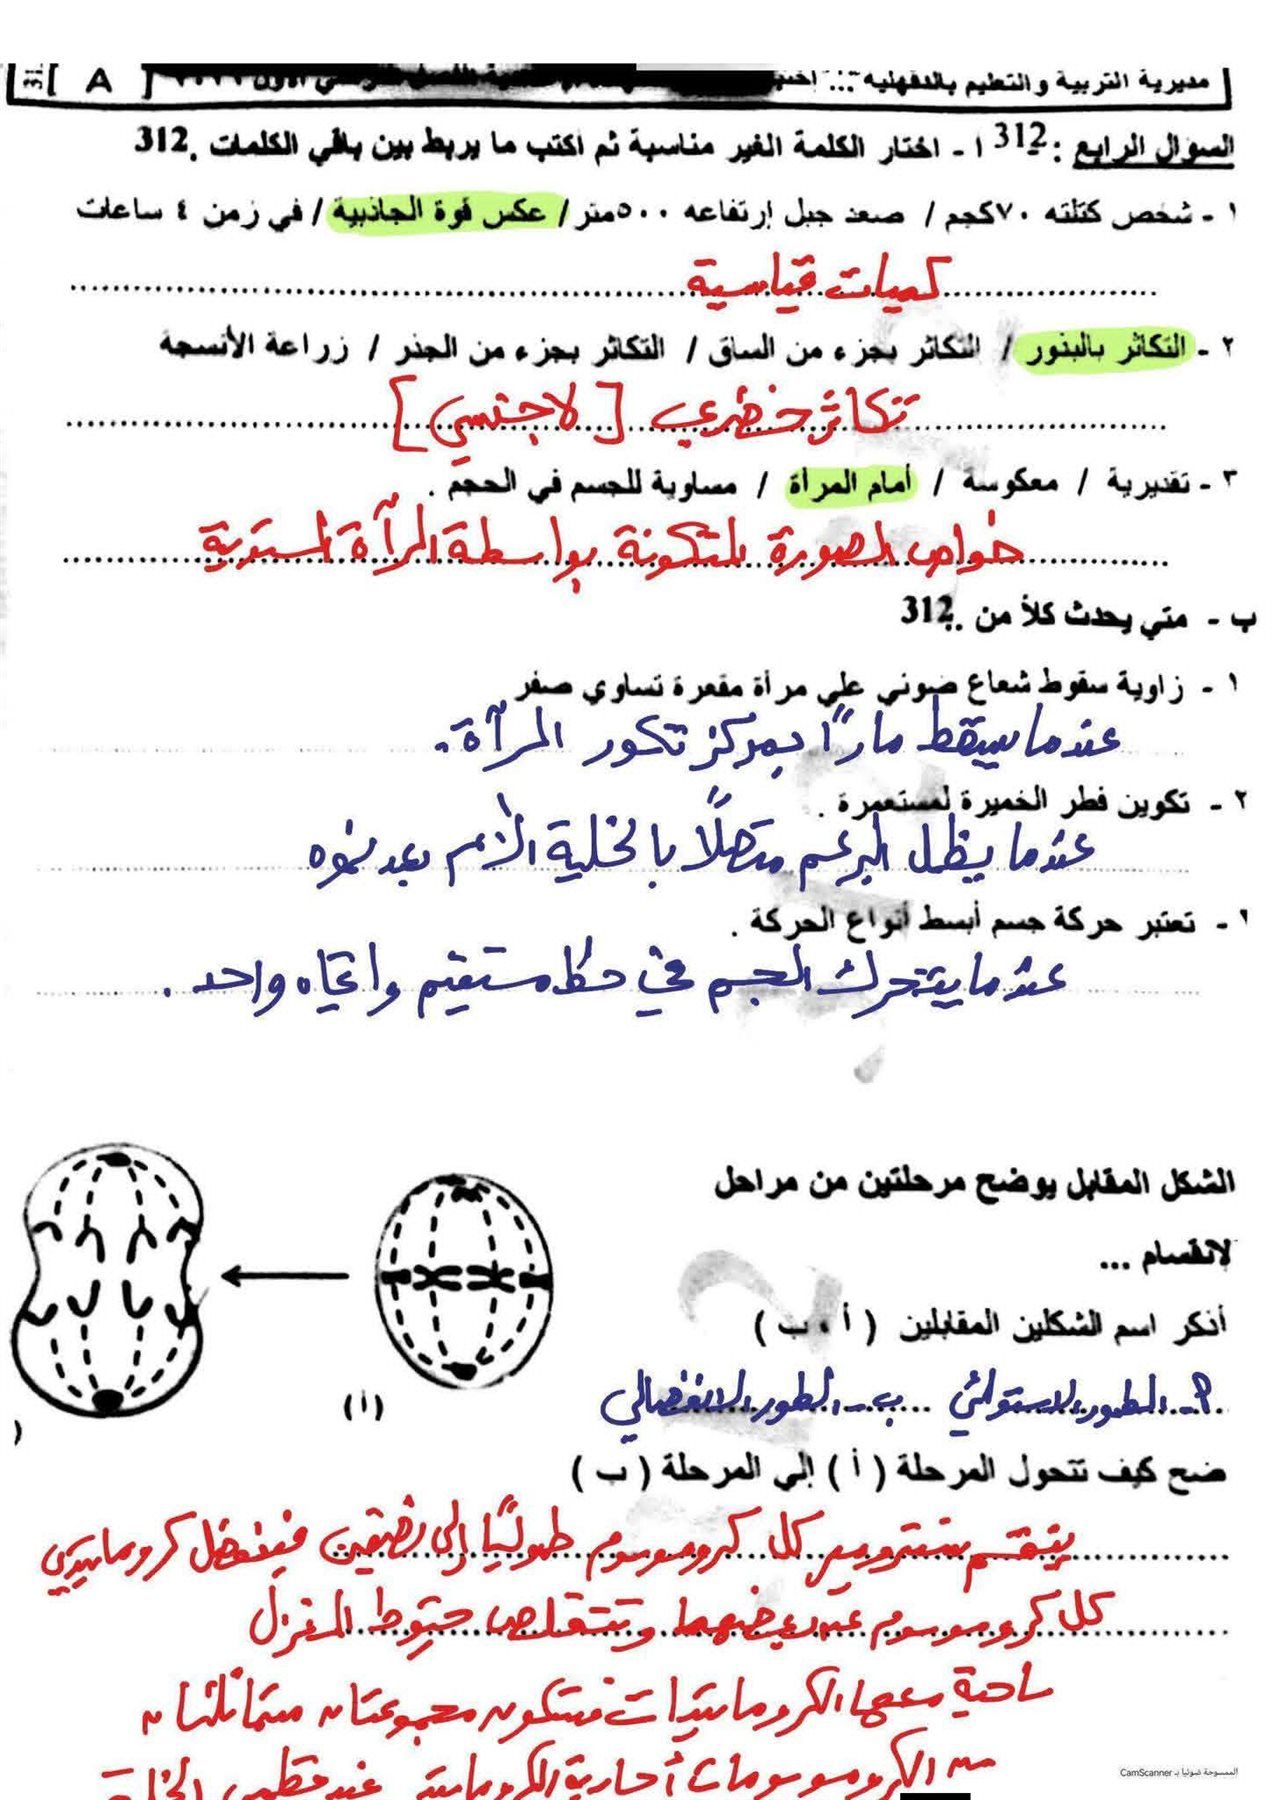 مديرية التربية والتعليم بالدقهلية ...
[ A ]
السؤال الرابع : 312 ا - اختار الكلمة الغير مناسبة ثم اكتب ما يربط بين باقي الكلمات .312
١ - شخص كتلته ٧٠كجم / صعد جبل إرتفاعه ٥٠٠متر / عكس قوة الجاذبية / في زمن ٤ ساعات
كميات قياسية
٢ - التكاثر بالبذور / التكاثر بجزء من الساق / التكاثر بجزء من الجذر / زراعة الأنسجة
تكاثر خضري [ لاجنسي ]
٣ - تقديرية / معكوسة / أمام المرأة / مساوية للجسم في الحجم .
خواص الصورة المتكونة بواسطة المرآة المستوية
ب - متي يحدث كلاً من .. 312
١ - زاوية سقوط شعاع ضوئي علي مرأة مقعرة تساوي صفر
عندما يسقط مارًا بمركز تكور المرآة.
٢ - تكوين فطر الخميرة لمستعمرة .
عندما يظل البرعم متصلًا بالخلية الأم بعد نموه
- تعتبر حركة جسم أبسط أنواع الحركة .
عندما يتحرك الجسم في خط مستقيم واتجاه واحد .
الشكل المقابل يوضح مرحلتين من مراحل
لانقسام ...
أذكر اسم الشكلين المقابلين ( أ ، ب )
(أ)
أ- الطور الاستوائي ب- الطور الانفصالي
ضح كيف تتحول المرحلة ( أ ) إلي المرحلة ( ب )
ينقسم سنترومير كل كروموسوم طوليًا إلى نصفين فينفصل كروماتيدي
كل كروموسوم عن بعضهما وتتقلص خيوط المغزل
ساحبة معها الكروماتيدات فتتكون مجموعتان متماثلتان
من الكروموسومات أحادية الكروماتيد عند قطبي الخلية
الممسوحة ضوئيا بـ CamScanner